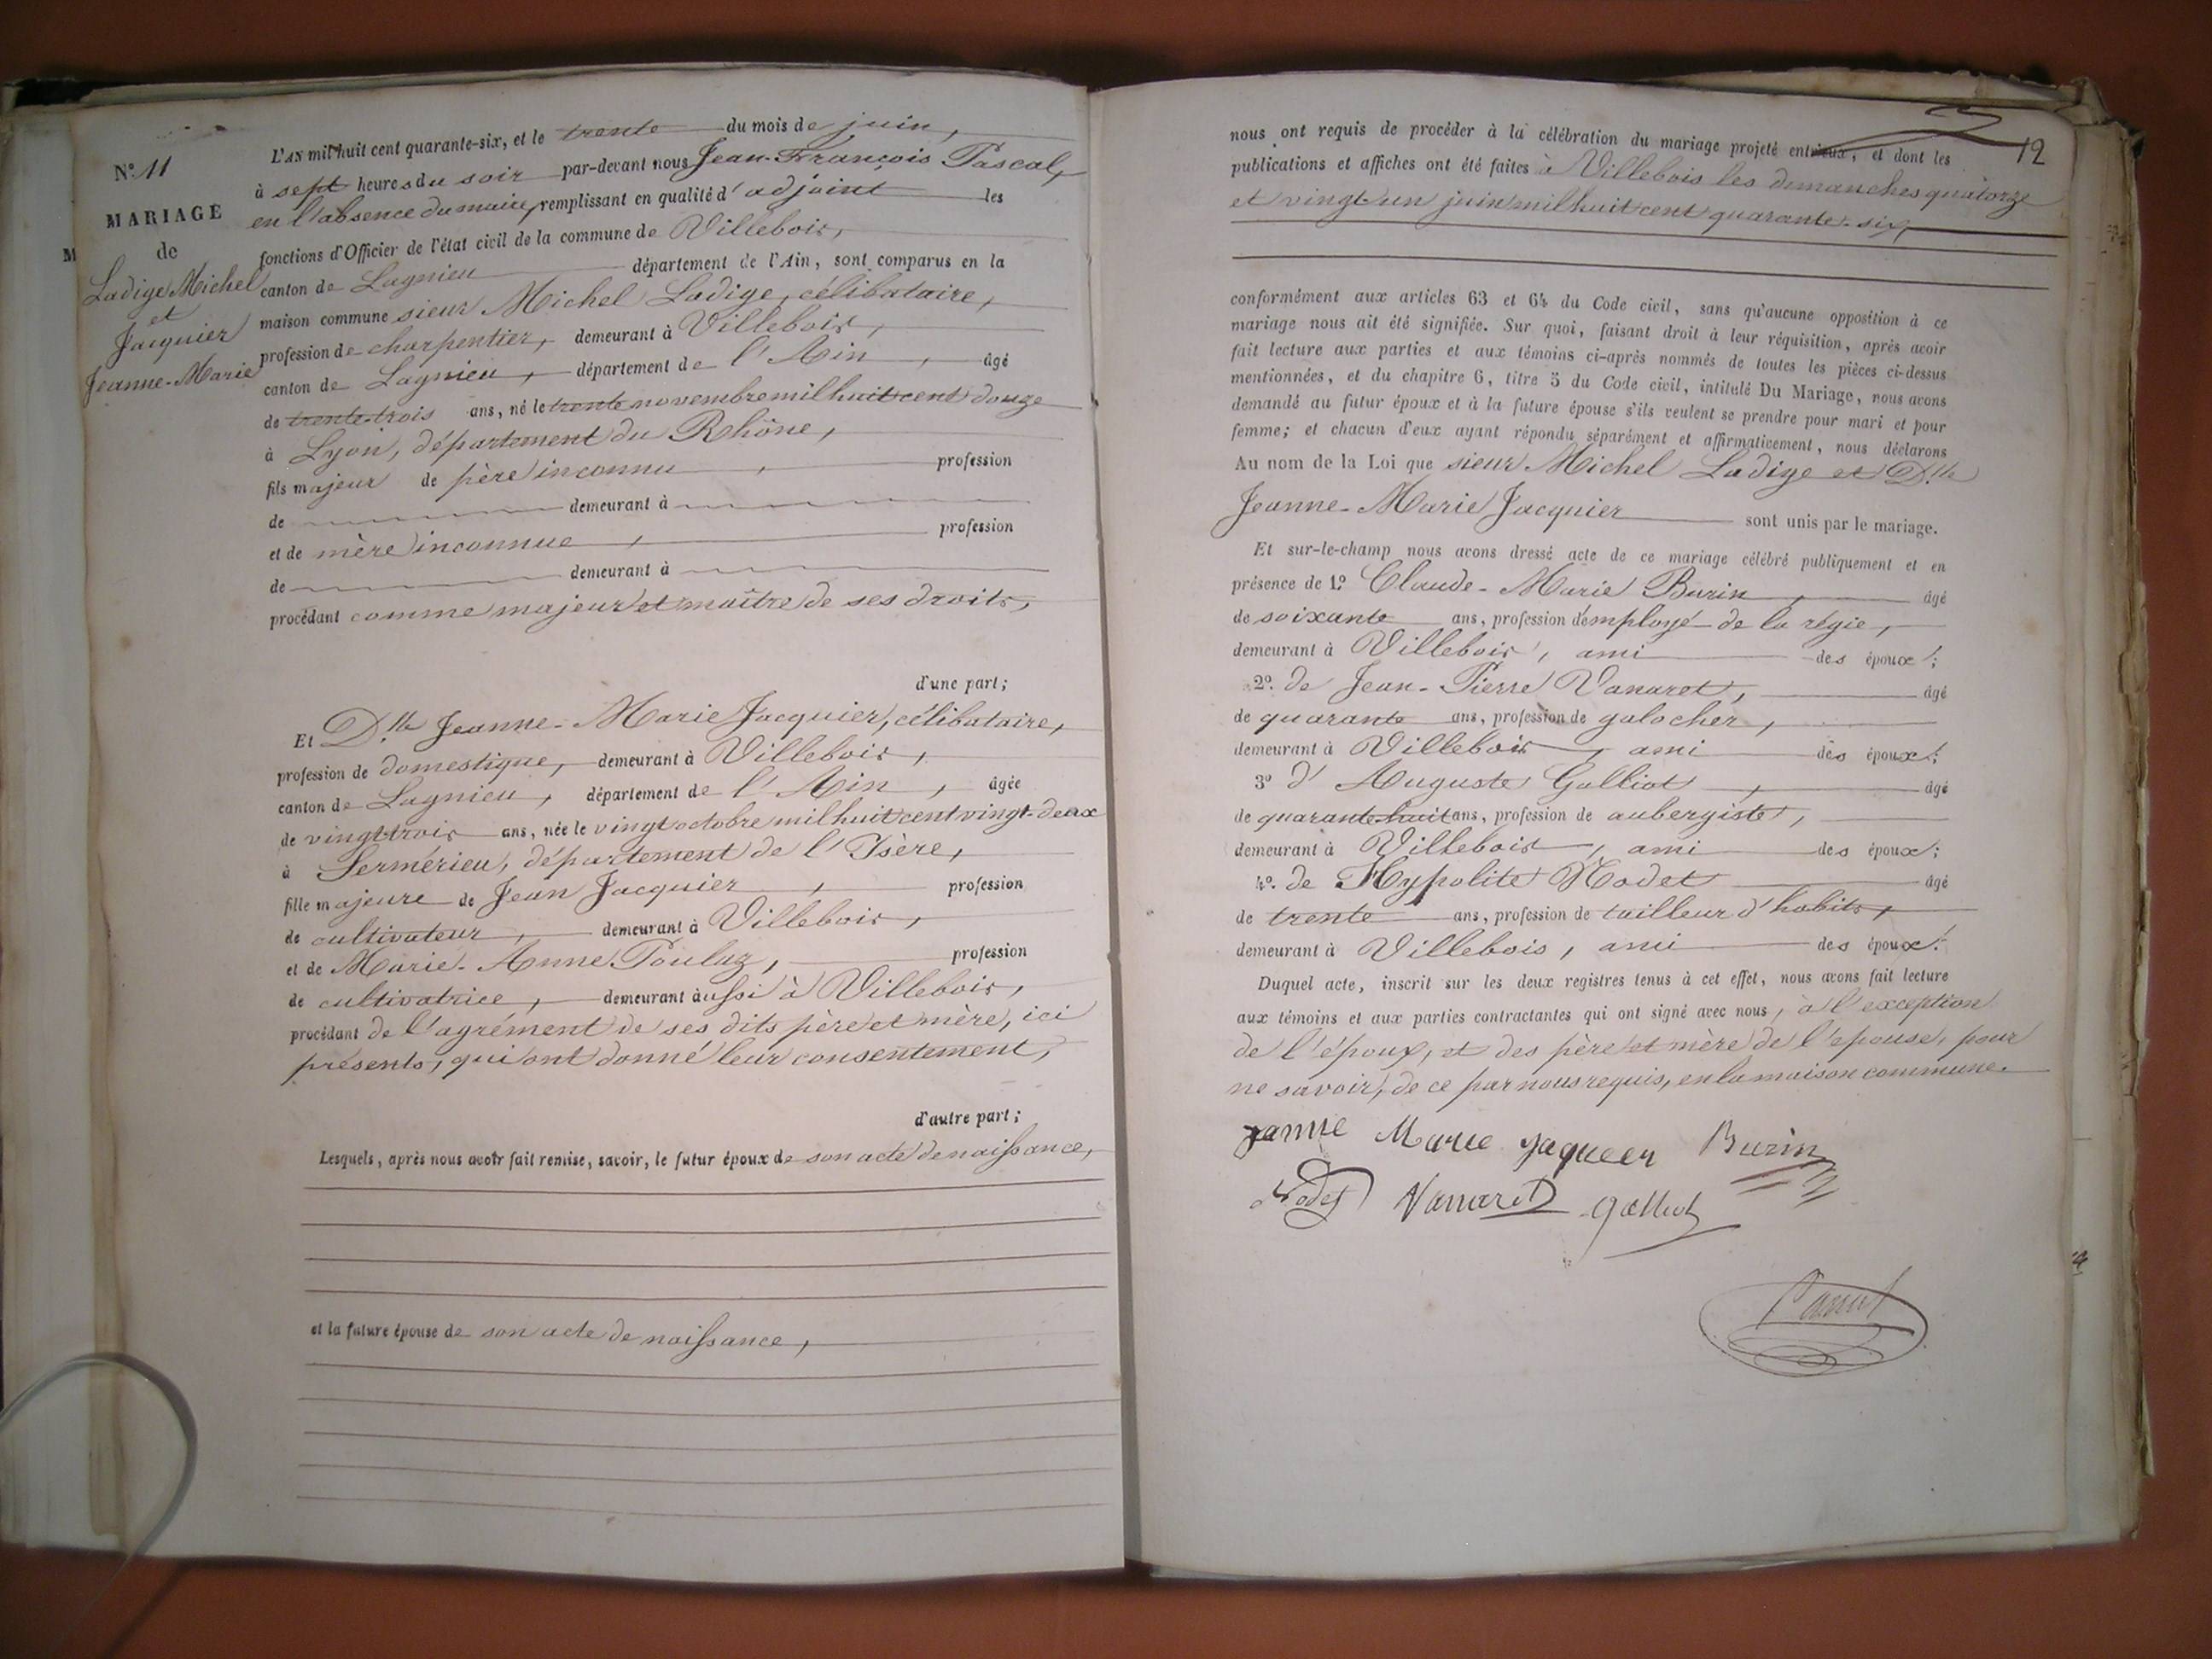 N.º 11
MARIAGE
de
Ladige Michel
et
Jacquier
Jeanne-Marie
L'AN mil huit cent quarante-six, et le trente du mois de juin,
à sept heures du soir par-devant nous Jean-François Pascal,
en l'absence du maire, remplissant en qualité d'adjoint les
fonctions d'Officier de l'état civil de la commune de Villebois,
canton de Lagnieu département de l'Ain, sont comparus en la
maison commune sieur Michel Ladige, célibataire,
profession de charpentier, demeurant à Villebois,
canton de Lagnieu, département de l'Ain, âgé
de trente trois ans, né le trente novembre mil huit cent douze
à Lyon, département du Rhône,
fils majeur de père inconnu, profession
de demeurant à
et de mère inconnue, profession
de demeurant à
procédant comme majeur et maître de ses droits,
d'une part;
Et D.lle Jeanne-Marie Jacquier, célibataire,
profession de domestique, demeurant à Villebois,
canton de Lagnieu, département de l'Ain, âgée
de vingt trois ans, née le vingt octobre mil huit cent vingt-deux
à Sermérieu, département de l'Isère,
fille majeure de Jean Jacquier, profession
de cultivateur, demeurant à Villebois,
et de Marie-Anne Poulaz, profession
de cultivatrice, demeurant aussi à Villebois,
procédant de l'agrément de ses dits père et mère, ici
présents, qui ont donné leur consentement,
d'autre part;
Lesquels, après nous avoir fait remise, savoir, le futur époux de son acte de naissance,
et la future épouse de son acte de naissance,
12
nous ont requis de procéder à la célébration du mariage projeté entr'eux, et dont les
publications et affiches ont été faites à Villebois les dimanches quatorze
et vingt-un juin mil huit cent quarante-six,
conformément aux articles 63 et 64 du Code civil, sans qu'aucune opposition à ce
mariage nous ait été signifiée. Sur quoi, faisant droit à leur réquisition, après avoir
fait lecture aux parties et aux témoins ci-après nommés de toutes les pièces ci-dessus
mentionnées, et du chapitre 6, titre 5 du Code civil, intitulé Du Mariage, nous avons
demandé au futur époux et à la future épouse s'ils veulent se prendre pour mari et pour
femme; et chacun d'eux ayant répondu séparément et affirmativement, nous déclarons
Au nom de la Loi que sieur Michel Ladige et D.lle
Jeanne-Marie Jacquier sont unis par le mariage.
Et sur-le-champ nous avons dressé acte de ce mariage célébré publiquement et en
présence de 1.º Claude-Marie Burin, âgé
de soixante ans, profession d'employé de la régie,
demeurant à Villebois, ami des époux;
2.º de Jean-Pierre Vanaret, âgé
de quarante ans, profession de galocher,
demeurant à Villebois, ami des époux;
3.º d'Auguste Galliot, âgé
de quarante-huit ans, profession de aubergiste,
demeurant à Villebois, ami des époux;
4.º de Hypolite Nodet âgé
de trente ans, profession de tailleur d'habits,
demeurant à Villebois, ami des époux.
Duquel acte, inscrit sur les deux registres tenus à cet effet, nous avons fait lecture
aux témoins et aux parties contractantes qui ont signé avec nous, à l'exception
de l'époux, et des père et mère de l'épouse, pour
ne savoir, de ce par nous requis, en la maison commune.
janne Marie jaqueer Burin
Nodet Vanaret galliot